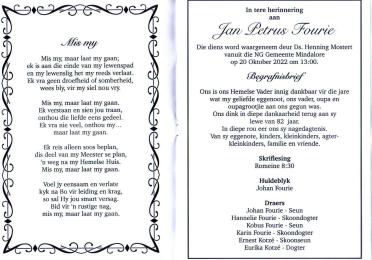 Mis my
Mis my, maar laat my gaan;
ek is aan die einde van my lewenspad
en my lewenslig het my reeds verlaat.
Ek vra geen droefheid of somberheid,
wees bly, vir my siel nou vry.
Mis my, maar laat my gaan.
Ek verstaan en sien jou traan,
onthou die liefde eens gedeel.
Ek vra nie veel, onthou my…
mis my, maar laat my gaan.
Ek reis alleen soos beplan,
dis deel van my Meester se plan,
'n weg na my Hemelse Huis.
Mis my, maar laat my gaan.
Voel jy eensaam en verlate
kyk na Bo vir leiding en krag,
so sal Hy jou smart versag.
Bid vir 'n rustige nag,
mis my, maar laat my gaan.
In tere herinnering
aan
Jan Petrus Fourie
Die diens word waargeneem deur Ds. Henning Mostert
vanuit die NG Gemeente Mindalore
op 20 Oktober 2022 om 13:00.
Begrafnisbrief
Ons is ons Hemelse Vader innig dankbaar vir die jare
wat my geliefde eggenoot, ons vader, oupa en
oupagrootjie aan ons gegun was.
Ons dink in diepe dankbaarheid terug aan sy
lewe van 82 jaar.
In diepe rou eer ons sy nagedagtenis.
Van sy eggenote, kinders, kleinkinders, agter-
kleinkinders, familie en vriende.
Skriflesing
Romeine 8:30
Huldeblyk
Johan Fourie
Draers
Johan Fourie - Seun
Hannelie Fourie - Skoondogter
Kobus Fourie - Seun
Karin Fourie - Skoondogter
Ernest Kotzé - Skoonseun
Eurika Kotzé - Dogter